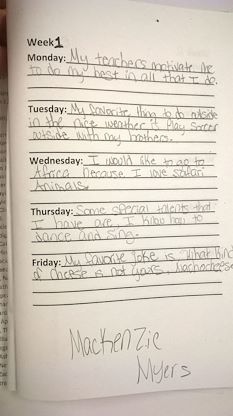 Week 1
Monday: My teachers motivate me
to do my best in all that I do.
Tuesday: My favorite thing to do outside
in the nice weather is play soccer
outside with my brothers.
Wednesday: I would like to go to
Africa because I love safari
Animals.
Thursday: Some special talents that
I have are I know how to
dance and sing.
Friday: My favorite Joke is What kind
of cheese is not yours, Nachocheese
Mackenzie
Myers